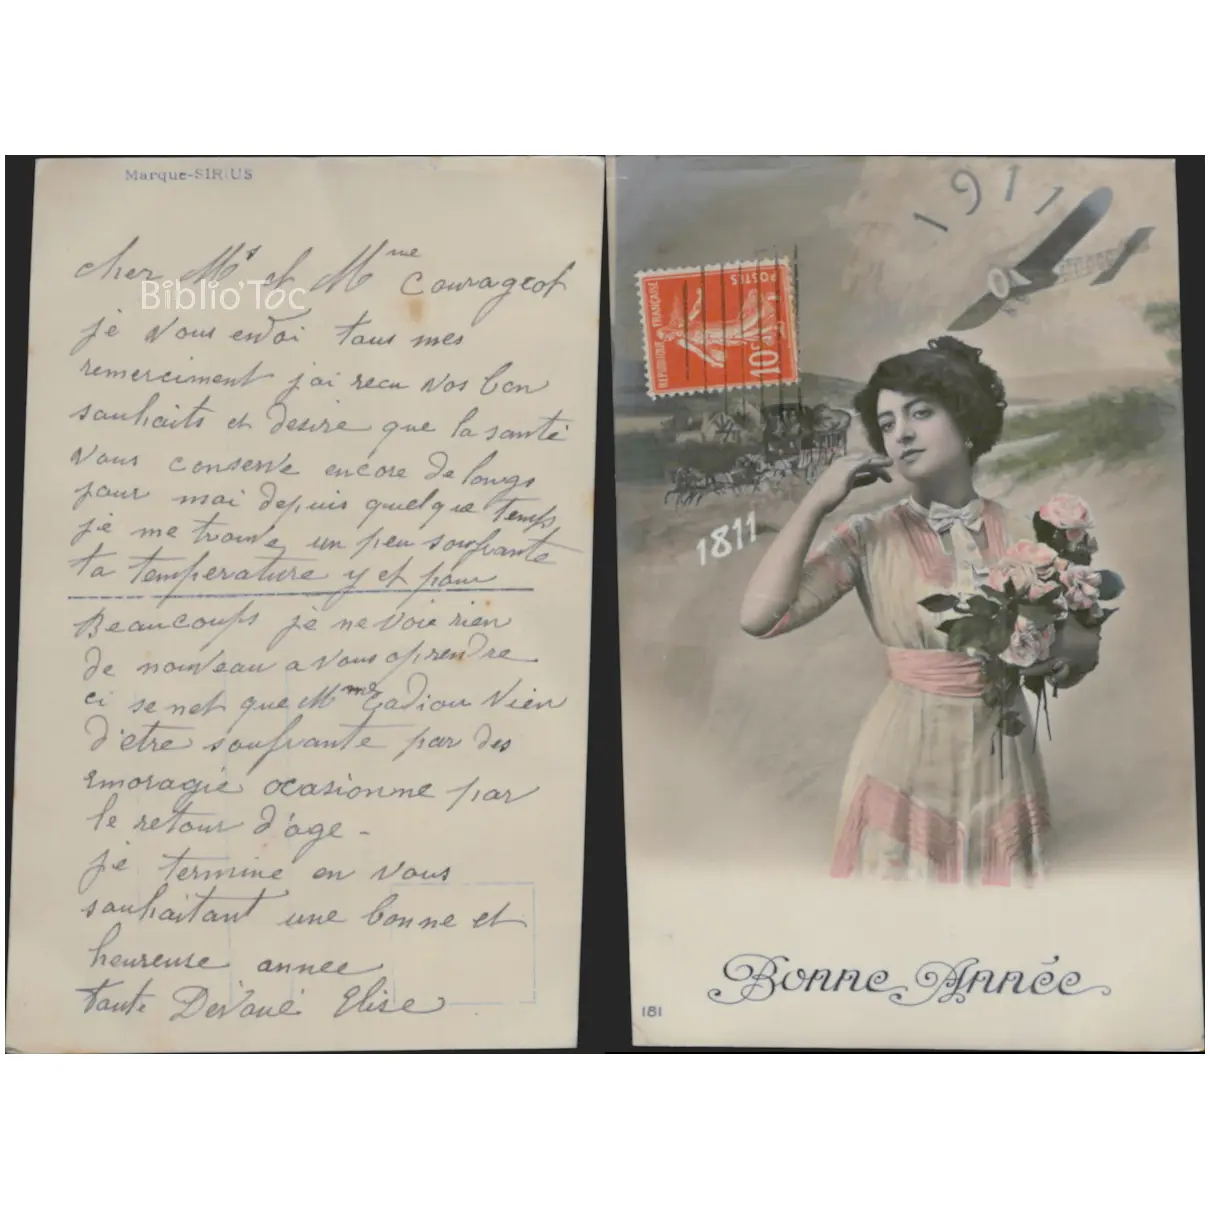 Marque-SIRIUS
cher Mr et Mme Courageot
Biblio'Toc
je vous envoi tous mes
remerciment j'ai recu vos bon
souhaits et desire que la santé
vous conserve encore de longs
jour moi depuis quelque temps
je me trouve un peu soufrante
ta temperature y et pour
Beaucoups je ne voie rien
de nouveau a vous aprendre
ci se net que Mme Cadiou vien
d'etre soufrante par des
emoragie ocasionne par
le retour d'age -
je termine en vous
souhaitant une bonne et
heureuse annee
tante Devoué Elise
1911
POSTES
REPUBLIQUE FRANÇAISE
10c
1811
Bonne Année
181